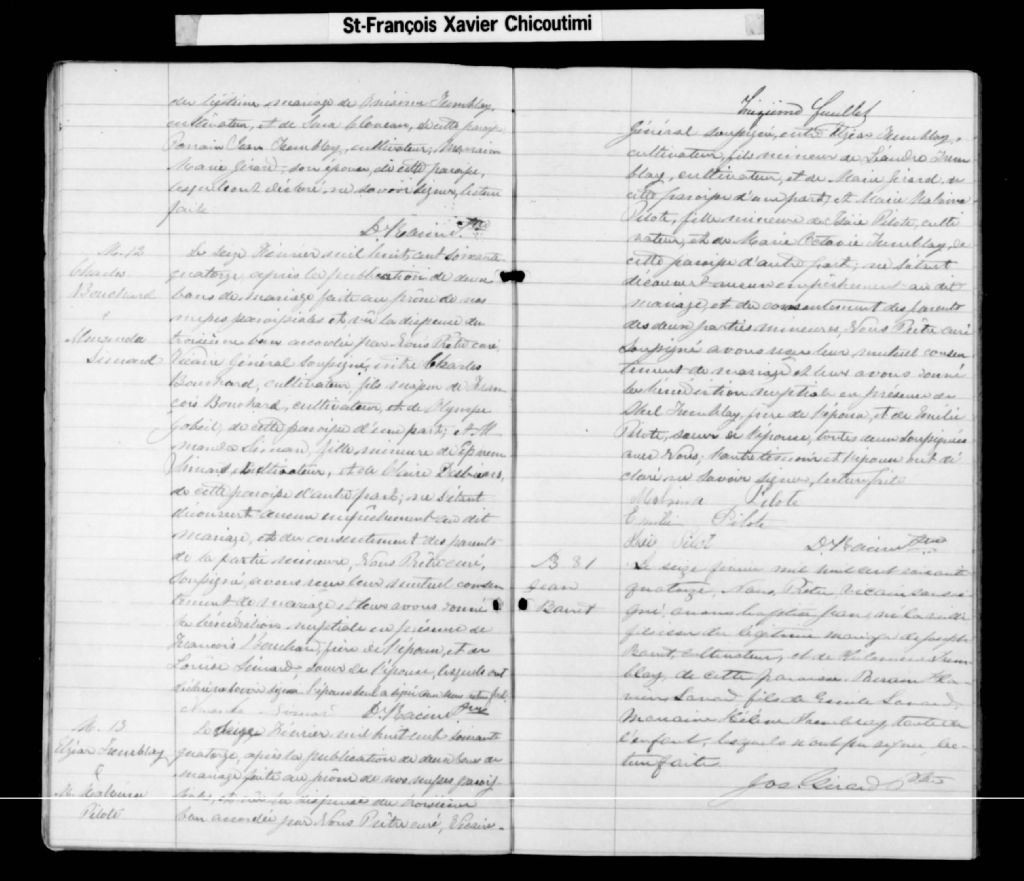 St-François Xavier Chicoutimi
du légitime mariage de Onésime Tremblay,
cultivateur, et de Sara de cette paroisse
Parrain Jean Tremblay, cultivateur; Marraine
Marie Girard, son épouse, de cette paroisse,
lesquels ont déclaré ne savoir signer, lecture
faite
D. Racine Ptre
M. 12
Charles
Bouchard
&
Amanda
Simard
Le seize Février mil huit cent soixante
quatorze, après la publication de deux
bans de mariage faite au prône de nos
messes paroissiales et vû la dispense du
troisième ban accordée par Nous Prêtre curé,
Vicaire Général soussigné, entre Charles
Bouchard, cultivateur, fils majeur de Fran
çois Bouchard, cultivateur, et de Olympe
Gobeil, de cette paroisse d'une part; et A
manda Simard, fille mineure de Ephrem
Simard, cultivateur, et de Claire Desbiens,
de cette paroisse d'autre part; ne s'étant
découvert aucun empêchement au dit
mariage, et du consentement des parents
de la partie mineure, Nous Prêtre curé,
soussigné, avons reçu leur mutuel consen
tement de mariage et leur avons donné
la bénédiction nuptiale en présence de
François Bouchard, père de l'époux, et de
Louise Simard, soeur de l'épouse, lesquels ont
déclaré ne savoir signer. l'épouse seule a signé avec nous lecture faite
Simard D. Racine Ptre
M. 13
Elzéar Tremblay
&
M. Malvina
Pilote
Le seize Février mil huit cent soixante
quatorze, après la publication de deux bans de
mariage faite au prône de nos messes parois
siales, et vû la dispense du troisième
ban accordée par Nous Prêtre curé, Vicaire-
Trigésimo Feuillet
Général soussigné, entre Elzéar Tremblay,
cultivateur, fils mineur de Léandre Trem
blay, cultivateur, et de Marie Girard de
cette paroisse d'une part; et Marie Malvina
Pilote, fille mineure de Isaïe Pilote, culti
vateur, et de Marie Octavie Tremblay, de
cette paroisse d'autre part; ne s'étant
découvert aucun empêchement au dit
mariage, et du consentement des parents
des deux parties mineures, Nous Prêtre curé
soussigné avons reçu leur mutuel consen
tement de mariage et leur avons donné
la bénédiction nuptiale en présence de
Abel Tremblay, frère de l'époux, et de Emélie
Pilote, soeur de l'épouse, toutes deux soussignées
avec Nous; l'autre témoin et l'époux ont dé
claré ne savoir signer, lecture faite
Malvina Pilote
Emilie Pilote
D. Racine Ptre
B 81
Jean
Baret
Le seize février mil huit cent soixante
quatorze, Nous Prêtre Vicaire soussi
gné, avons baptisé Jean, né la veille
fils du légitime mariage de Joseph
Baret, cultivateur, et de Philomène Trem
blay, de cette paroisse. Parrain Fla
vien Savard, fils de Savard,
Marraine Hélène Tremblay tante de
l'enfant, lesquels n'ont pu signer lec
ture faite.
Jos Girard Ptre